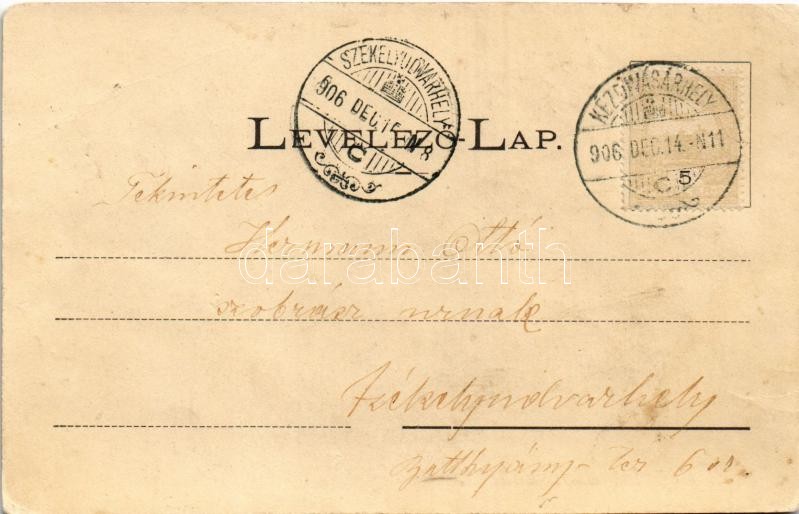 SZÉKELYUDVARHELY
906 DEC.15. N8
C
KÉZDIVÁSÁRHELY
906 DEC.14.-N11
C
5
LEVELEZŐ-LAP.
Tekintetes
Hermann Ottó
szobrász urnak
Székelyudvarhely
Batthyány-tér 6
darabanth